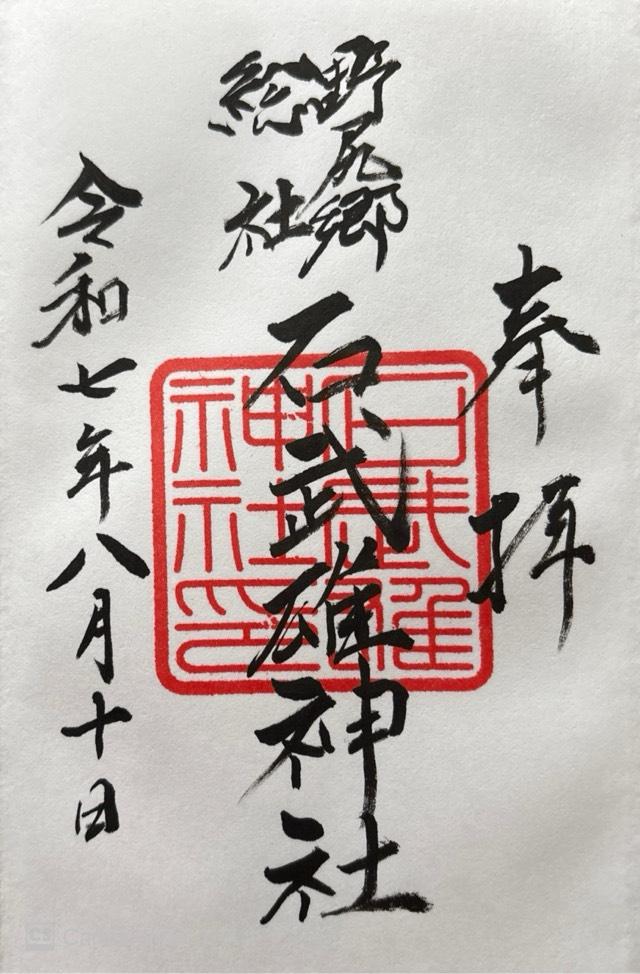 奉拝
野尻郷
総社
石武雄神社
石武雄
神社印
令和七年八月十日